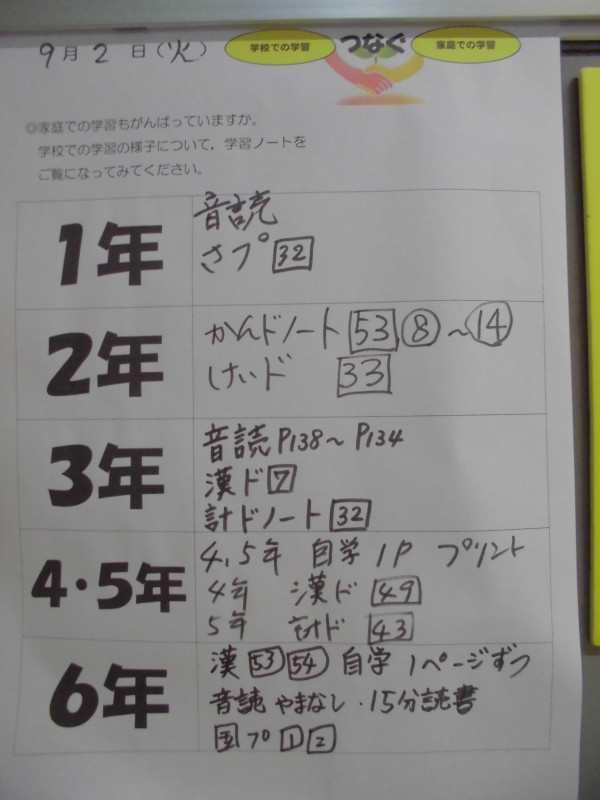 9月2日(火)
学校での学習 つなぐ 家庭での学習
◎家庭での学習もがんばっていますか。
学校での学習の様子について、学習ノートを
ご覧になってみてください。
1年
音読
さプ 32
2年
かんドノート 53 8~14
けいド 33
3年
音読 P138~P134
漢ド 7
計ドノート 32
4・5年
4,5年 自学1P プリント
4年 漢ド 49
5年 計ド 43
6年
漢 53 54 自学 1ページずつ
音読 やまなし・15分読書
国プ 1 2